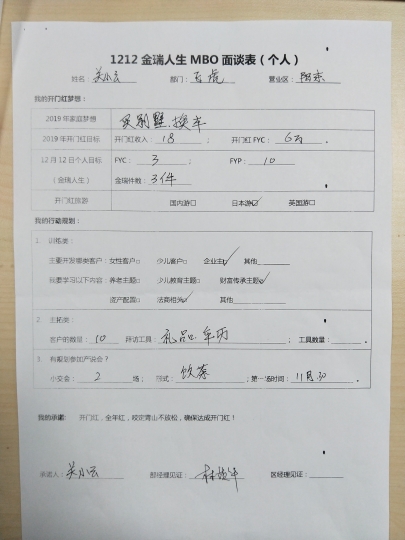 1212 金瑞人生 MBO 面谈表（个人）
姓名：关小云 部门：飞虎 营业区：
我的开门红梦想：
2019年家庭梦想 买别墅.换车
2019年开门红目标 开门红收入：18 ； 开门红 FYC：6万
12月12日个人目标 FYC：3 ； FYP：10
（金瑞人生） 金瑞件数：3件
开门红旅游 国内游□ 日本游☑ 美国游□
我的行动规划：
1 训练类：
主要开发哪类客户：女性客户□ 少儿客户□ 企业主☑ 其他
我要学习以下内容：养老主题□ 少儿教育主题□ 财富传承主题☑
资产配置□ 法商相关☑ 其他
2. 主拓类：
客户的数量：10 拜访工具：礼品.年历 ；工具数量：
3. 有规划参加产说会？
小交会：2 场； 形式：饮茶 ；第一场时间：11月30
我的承诺： 开门红，全年红，咬定青山不放松，确保达成开门红！
承诺人：关小云 部经理见证： 区经理见证：